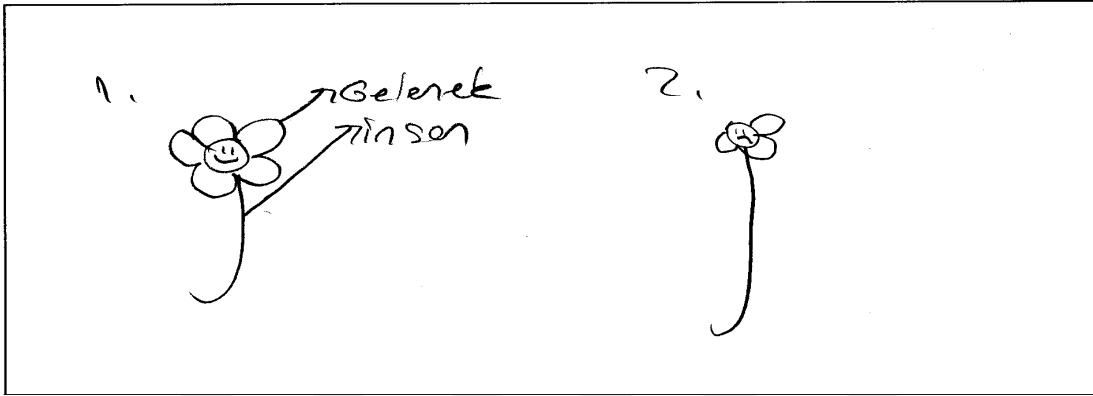 1.
Gelenek
insan
2.